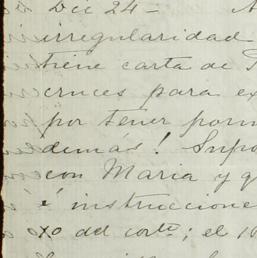 Dic 24 - A
irregularidad
tiene carta de
cruces para ex
por tener porm
demás! Supo
con Maria y q
é instruccione
xo del corte; el 1